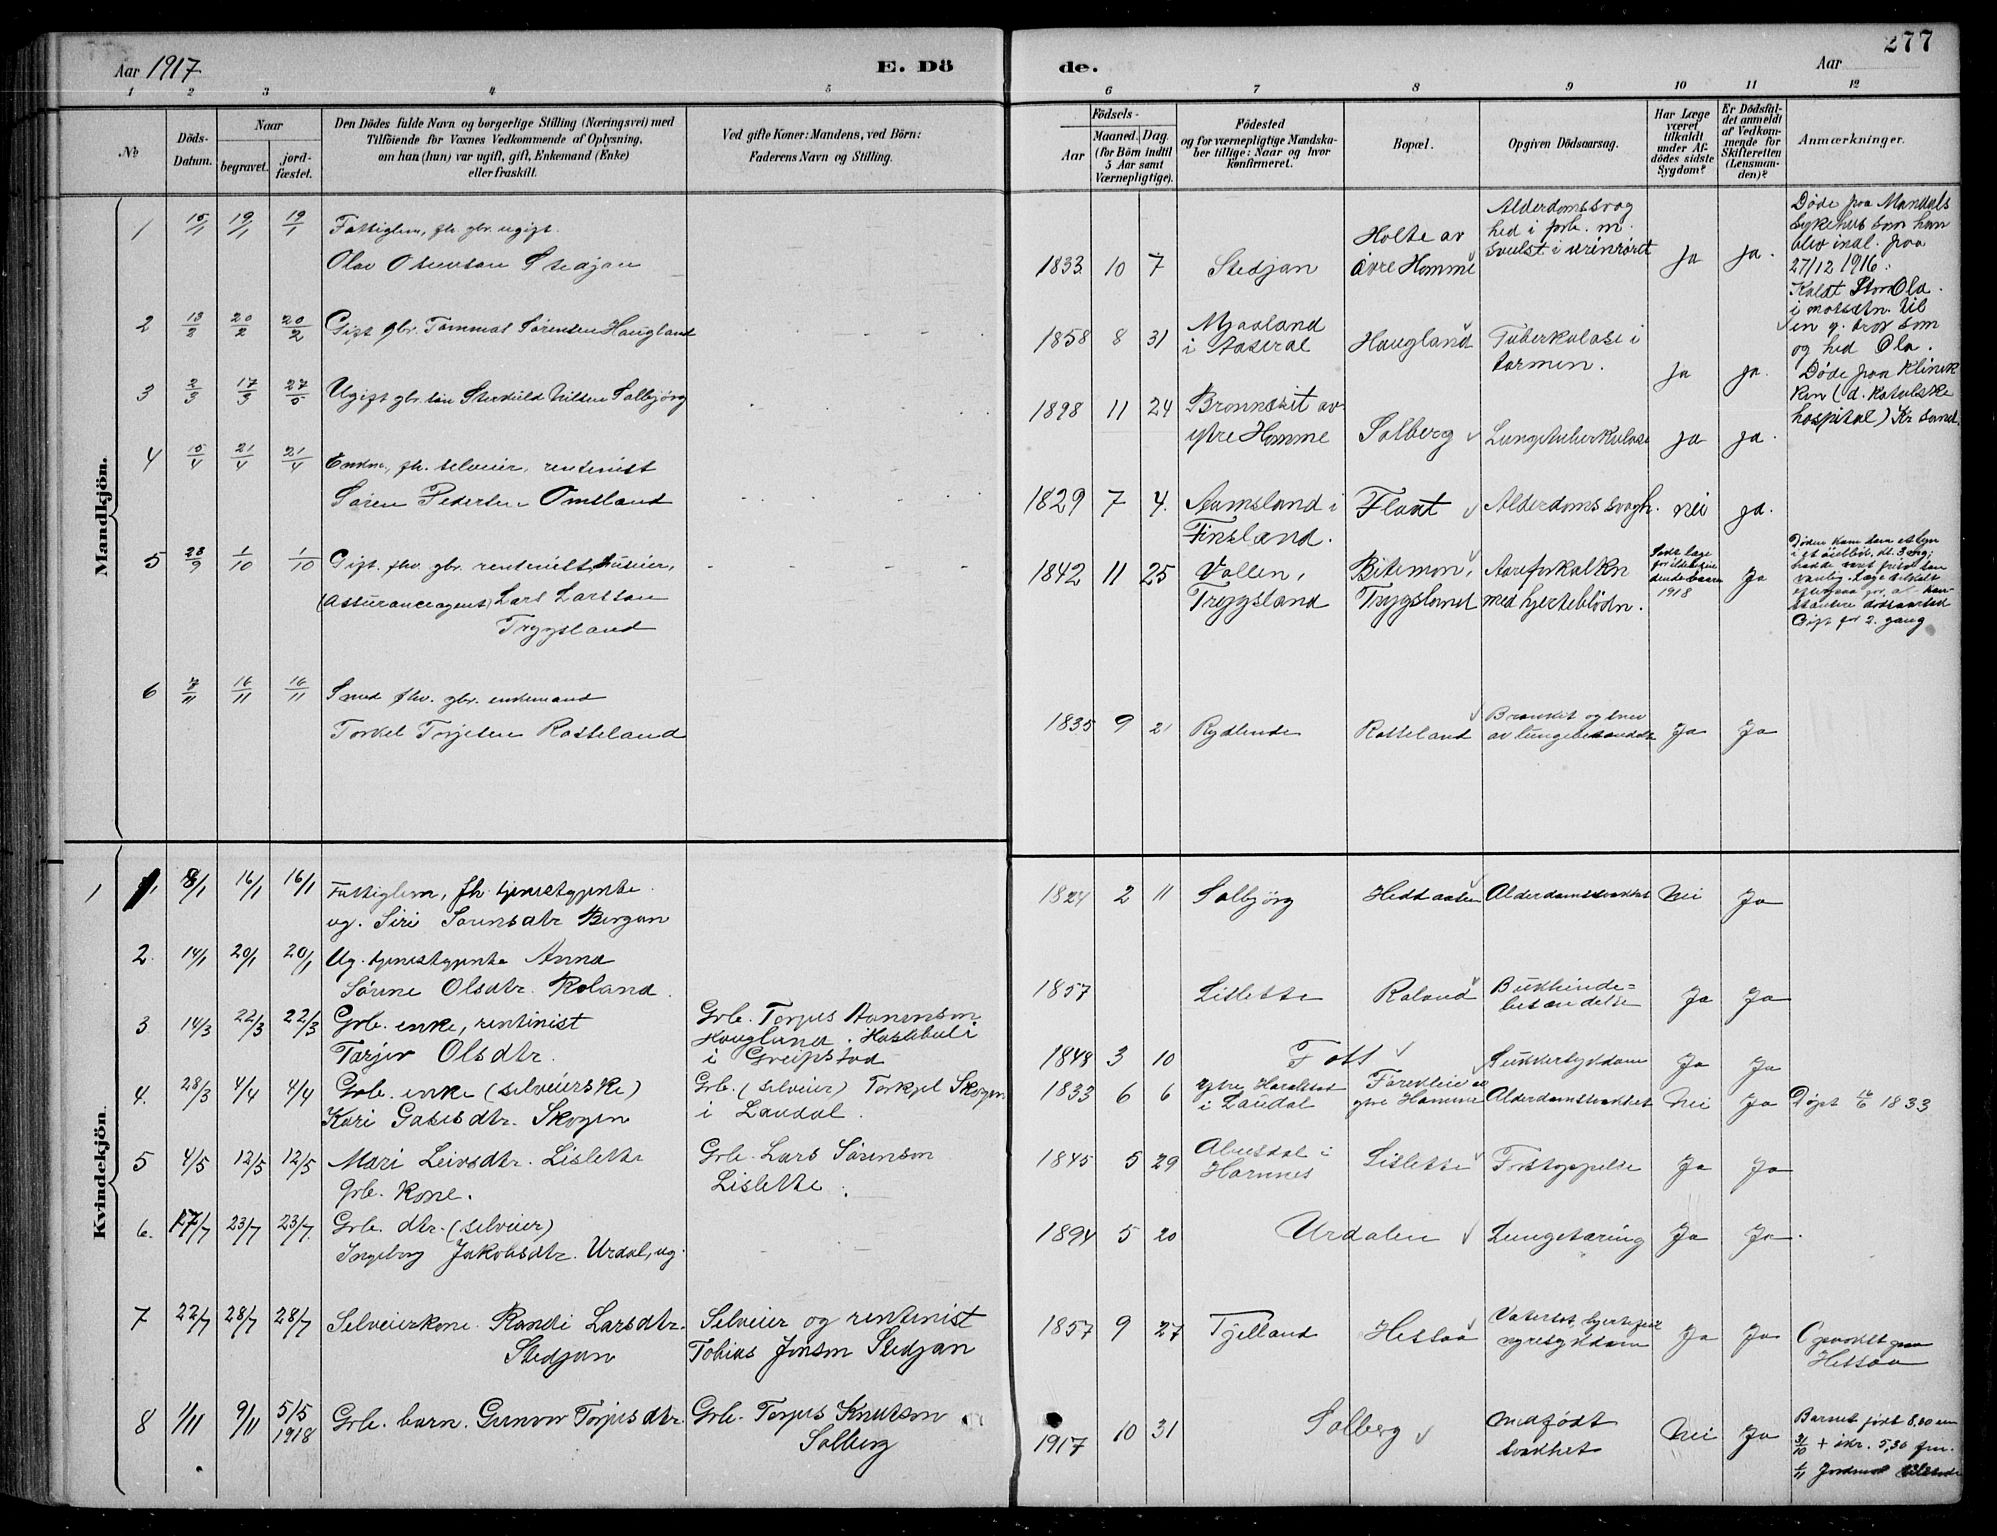 277
Aar 1917
E. Dö
de.
Aar
1 2 3 4 5 6 7 8 9 10 11 12
No
Döds-
Datum.
Naar
begravet.
jord-
fæstet.
Den Dödes fulde Navn og borgerlige Stilling (Næringsvei) med
Tilföiende for Voxnes Vedkommende af Oplysning,
om han (hun) var ugift, gift, Enkemand (Enke)
eller fraskilt.
Ved gifte Koner: Mandens, ved Börn:
Faderens Navn og Stilling.
Födsels-
Aar
Maaned. Dag.
(for Börn indtil
5 Aar samt
Værnepligtige).
Födested
og for værnepligtige Mandska-
ber tillige: Naar og hvor
konfirmeret.
Bopæl.
Opgiven Dödsaarsag.
Har Læge
været
tilkaldt
under Af-
dödes sidste
Sygdom?
Er Dödsfal-
det anmeldt
af Vedkom-
mende for
Skifteretten
(Lensman-
den)?
Anmærkninger.
Mandkjön.
1 15/1 19/1 19/1 Fattiglem, fh. gbr. ugift.
Olav Olsen Stedjan
1833 10 7 Stedjan
Holte av
øvre Homme
Alderdomssvag
hed i forb. m.
svulst i urinrøret
Ja ja.
Døde paa Mandals
sykehus som han
blev indl. paa
27/12 1916.
Kaldt Stor Ola
i motsetn. til
en y. bror som
og hed Ola.
2 13/2 20/2 20/2 Gift gbr. Tommas Sørensen Haugland
1858 8 31 Mjaaland
i Aaseral
Haugland
Tuberkulose i
tarmen.
ja ja.
3 2/3 17/3 27/5 Ugift gbr. søn Sterkuld Nilsen Solbjørg
1898 11 24 Brønndsit av
ytre Homme
Solberg Lungetuberkulose ja ja.
Døde paa Klinik
ken (d. katolske
hospital) Kr.sand.
4 15/4 21/4 21/4 Enkm., fh. selveier, rentenist
Søren Pedersen Omsland
1829 7 4. Aamsland i
Finsland.
Flaat Alderdomssvagh. nei ja.
5 28/9 1/10 1/10 Gift. fhv. gbr. rentenist, huseier,
(Assuranceagent) Lars Larsson
Trygsland
1842 11 25 Vollen,
Trygsland
Bitemon,
Trygsland
Aareforkalkn
med hjerteblødn.
1918
Ja
Gift for 2. gang
6 7/11 16/11 16/11 Smed fhv. gbr. enkemand
Torkel Terjesen Rosseland
1835 9 21 Rydlende Rosseland
av lungebetændelse
Ja Ja
Kvindekjön.
1 8/1 16/1 16/1 Fattiglem, fh. tjenestgjente
ug. Siri Sørensdtr. Bergan
1824 2 11 Solbjørg Heddaasen Alderdomssvakhet Nei Ja
2. 14/1 20/1 20/1 Ug. tjenestgjente Anna
Sørine Olsdtr. Roland.
1857 Lislette Roland Bukhinde-
betændelse
Ja Ja
3 14/3 22/3 22/3 Grb. enke, rentinist
Tarjer Olsdtr.
Grb. Torjus Aanenson
Haugland. Hastebøl i
i Greipstad
1848 3 10 Foss Sukkersykdom Ja Ja
4. 28/3 4/4 4/4 Grb. enke (selveierske)
Kari Gabelsdtr. Skogen
Grb. (selveier) Torkjel Skogen
i Laudal.
1833 6 6 Ytre Haraldstad
i Laudal
ytre Homme
Alderdomssvakhet Nei Ja Døpt 16/6 1833
5 4/5 12/5 12/5 Mari Leivsdtr. Lislette
Grb. kone.
Grb. Lars Sørenson
Lislette.
1845 5 29 Abusdal i
Hornnes
Lislette Ja Ja
6. 17/7 23/7 23/7. Grb. dtr. (selveier)
Ingeborg Jakobsdtr. Urdal, ug.
1894 5 20 Urdalen Lungetæring Ja Ja.
7 22/7 28/7 28/7 Selveierkone. Randi Larsdtr.
Stedjan
Selveier og rentenist
Tobias Jonson Stedjan
1857 9 27 Tjelland Hessaa
Vatersot, hjertefeil
nyresykdom
Ja Ja Opvokset paa
Hessaa
8 1/11 9/11 5/5 1918 Grb. barn. Gunvor Torjusdtr.
Grb. Torjus Knutson
Solberg
1917 10 31 Solberg medfødt
svakhet
Nei Ja
Barnet født 8,00 em
31/10 + ikr. 5,30 fm.
1/11 Jordmor tilstede